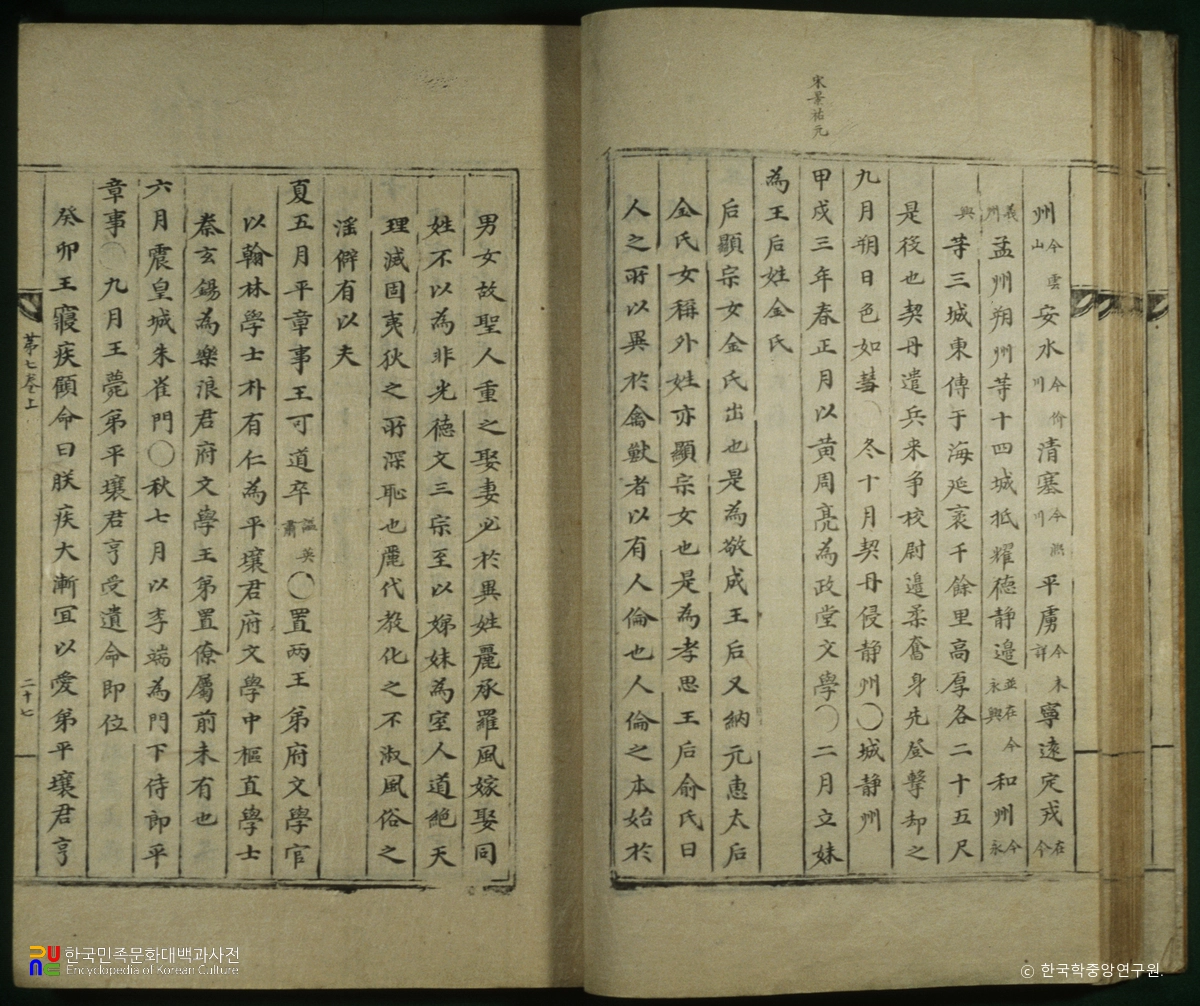 宋景祐元
州今雲山安水今价川清塞今熙川平虜今未詳寧遠定戎今在
義州孟州朔州等十四城抵耀德静邉並在今永興和州今永
興等三城東傅于海延袤千餘里高厚各二十五尺
是後也契丹遣兵来争校尉邉柔奮身先登擊却之
九月朔日色如彗〇冬十月契丹侵静州〇城静州
甲戌三年春正月以黄周亮為政堂文學〇二月立妹
為王后姓金氏
后顯宗女金氏出也是為敬成王后又納元惠太后
金氏女稱外姓亦顯宗女也是為孝思王后俞氏曰
人之所以異於禽獸者以有人倫也人倫之本始於
男女故聖人重之娶妻必於異姓麗承羅風嫁娶同
姓不以為非光德文三宗至以娣妹為室人道絶天
理滅固夷狄之所深恥也麗代教化之不淑風俗之
淫僻有以夫
夏五月平章事王可道卒諡英肅〇置两王弟府文學官
以翰林學士朴有仁為平壤君府文學中樞直學士
秦玄錫為樂浪君府文學王弟置僚屬前未有也
六月震皇城朱雀門〇秋七月以李端為門下侍郎平
章事〇九月王薨弟平壤君亨受遺命即位
癸卯王寢疾顧命曰朕疾大漸冝以愛弟平壤君亨
第七卷上
二十七
한국민족문화대백과사전
Encyclopedia of Korean Culture
© 한국학중앙연구원.